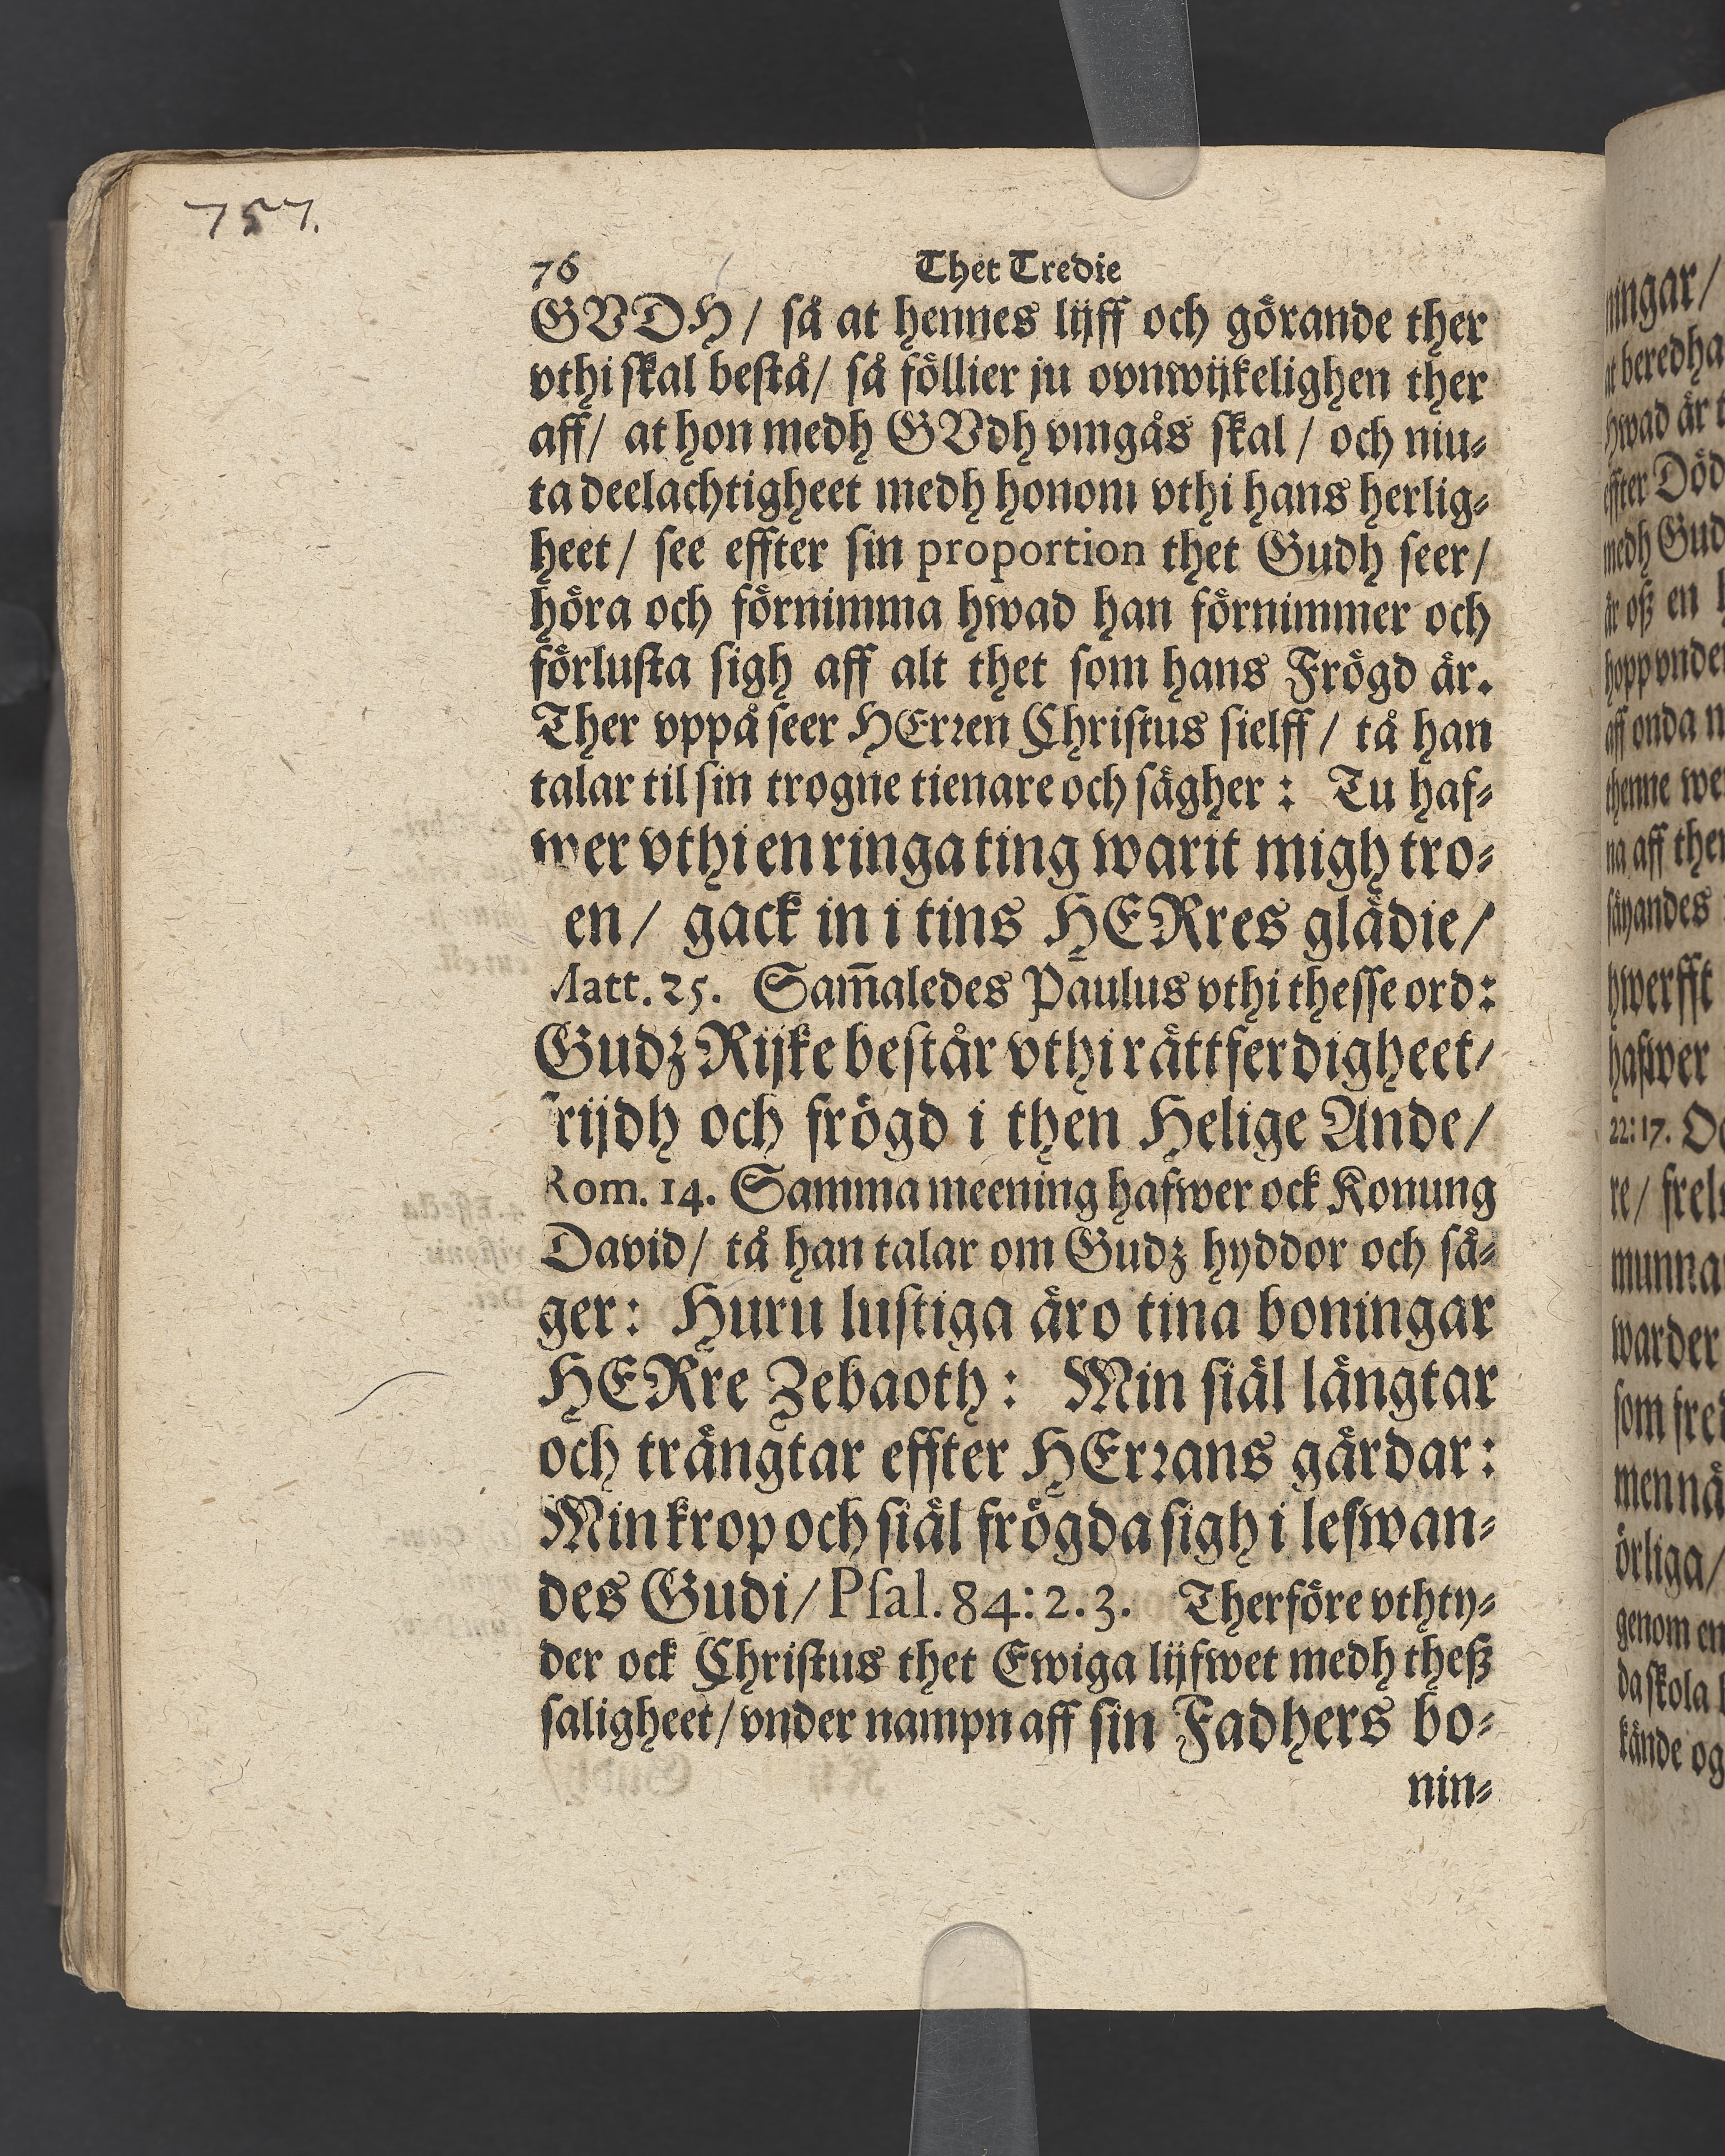 757.
76 Thet Tredie
GVDH / så at hennes lijff och görande ther
vthi skal bestå / så föllier ju ovnwijkelighen ther
aff / at hon medh GVdh vmgås skal / och niu⸗
ta deelachtigheet medh honom vthi hans herlig⸗
heet / see effter sin proportion thet Gudh seer /
höra och förnimma hwad han förnimmer och
förlusta sigh aff alt thet som hans Frögd är.
Ther vppå seer HErren Christus sielff / tå han
talar til sin trogne tienare och sägher : Tu haf⸗
wer vthi en ringa ting warit migh tro⸗
en / gack in i tins HERres glädie /
Matt. 25. Sam̃aledes Paulus vthi thesse ord :
Gudz Rijke består vthi rättferdigheet /
frijdh och frögd i then Helige Ande /
Rom. 14. Samma meening hafwer ock Konung
David / tå han talar om Gudz hyddor och sä⸗
ger : Huru lustiga äro tina boningar
HERre Zebaoth : Min siäl längtar
och trängtar effter HErrans gårdar :
Min krop och siäl frögda sigh i lefwan⸗
des Gudi / Psal. 84 : 2. 3. Therföre vthty⸗
der ock Christus thet Ewiga lijfwet medh theß
saligheet / vnder nampn aff sin Fadhers bo⸗
nin⸗
ningar /
beredha
hwad är
effter Död
medh Gud
är oß en
hopp vnde
aff onda
thenne we
na aff the
säyandes
hwerfft
hafwer
22 : 17.
re / frel
munna
warder
som fre
men nå
örliga /
genom en
da skola
kände og